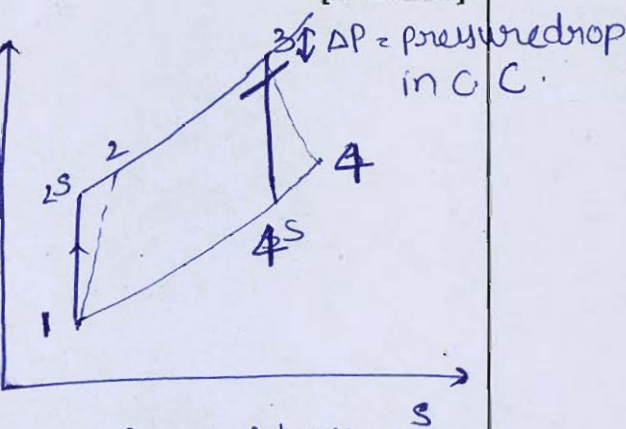 3 ΔP = pressuredrop
in C C.
2
2S
4
4S
1
S